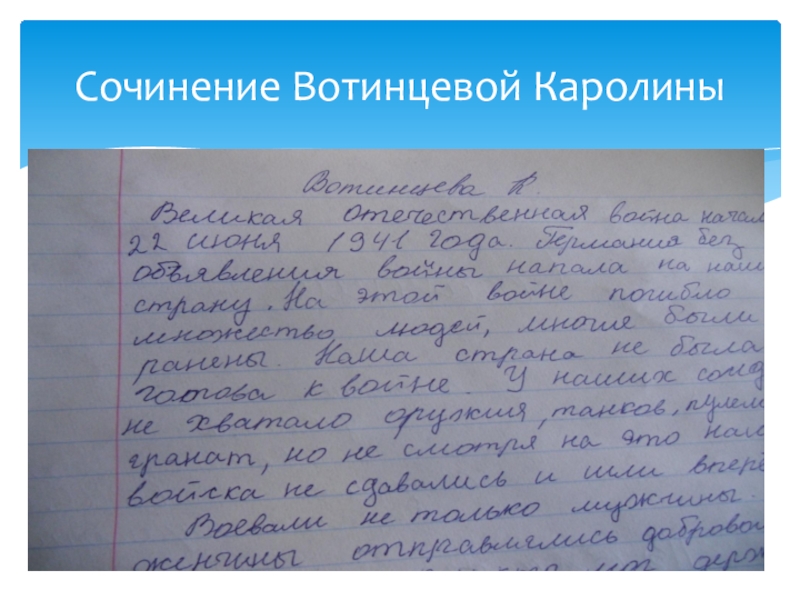 Сочинение Вотинцевой Каролины
Вотинцева К.
Великая отечественная война начал
22 июня 1941 года. Германия без
объявления войны напала на наш
страну. На этой войне погибло
множество людей, многие были
ранены. Наша страна не была
готова к войне. У наших солд
не хватало оружия, танков, пулем
гранат, но не смотря на это наш
войска не сдавались и шли вперё
Воевали не только мужчины.
женщины отправлялись доброво